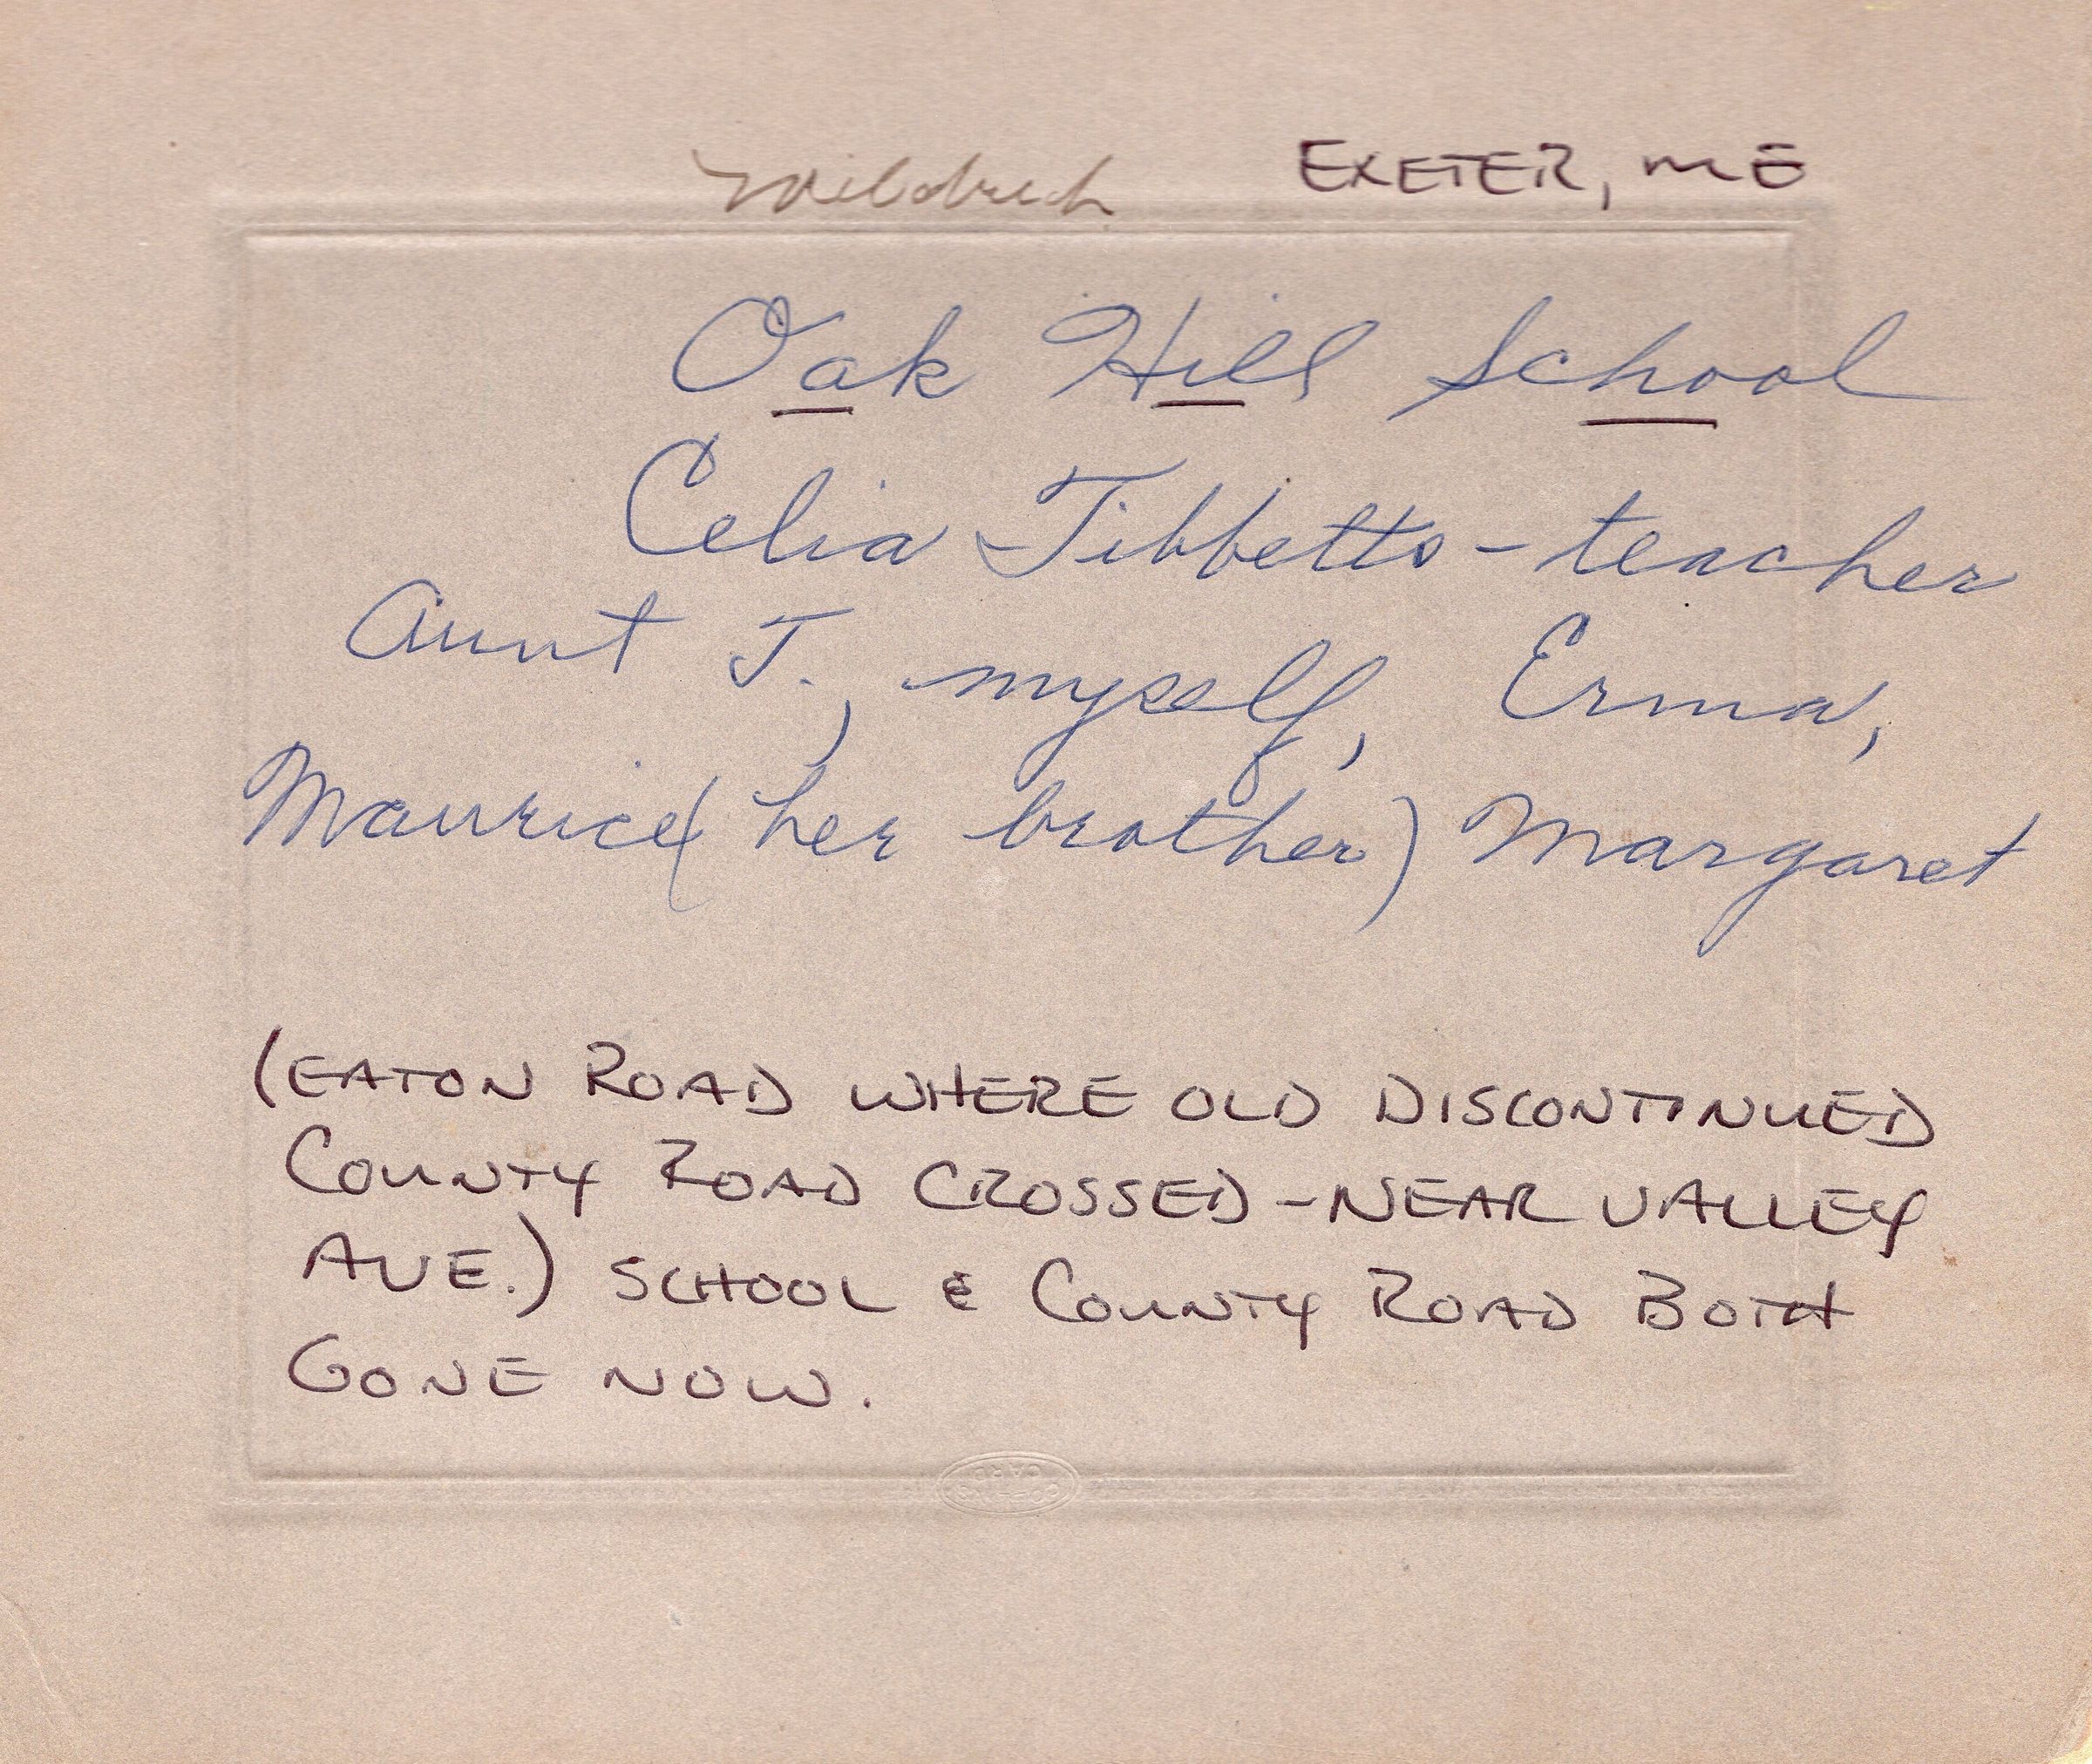 Mildred
EXETER, ME
Oak Hill School
Celia Tibbetts - teacher
Aunt J., myself, Erma,
Maurice (her brother) Margaret
(EATON ROAD WHERE OLD DISCONTINUED
COUNTY ROAD CROSSED - NEAR VALLEY
AVE.) SCHOOL & COUNTY ROAD BOTH
GONE NOW.